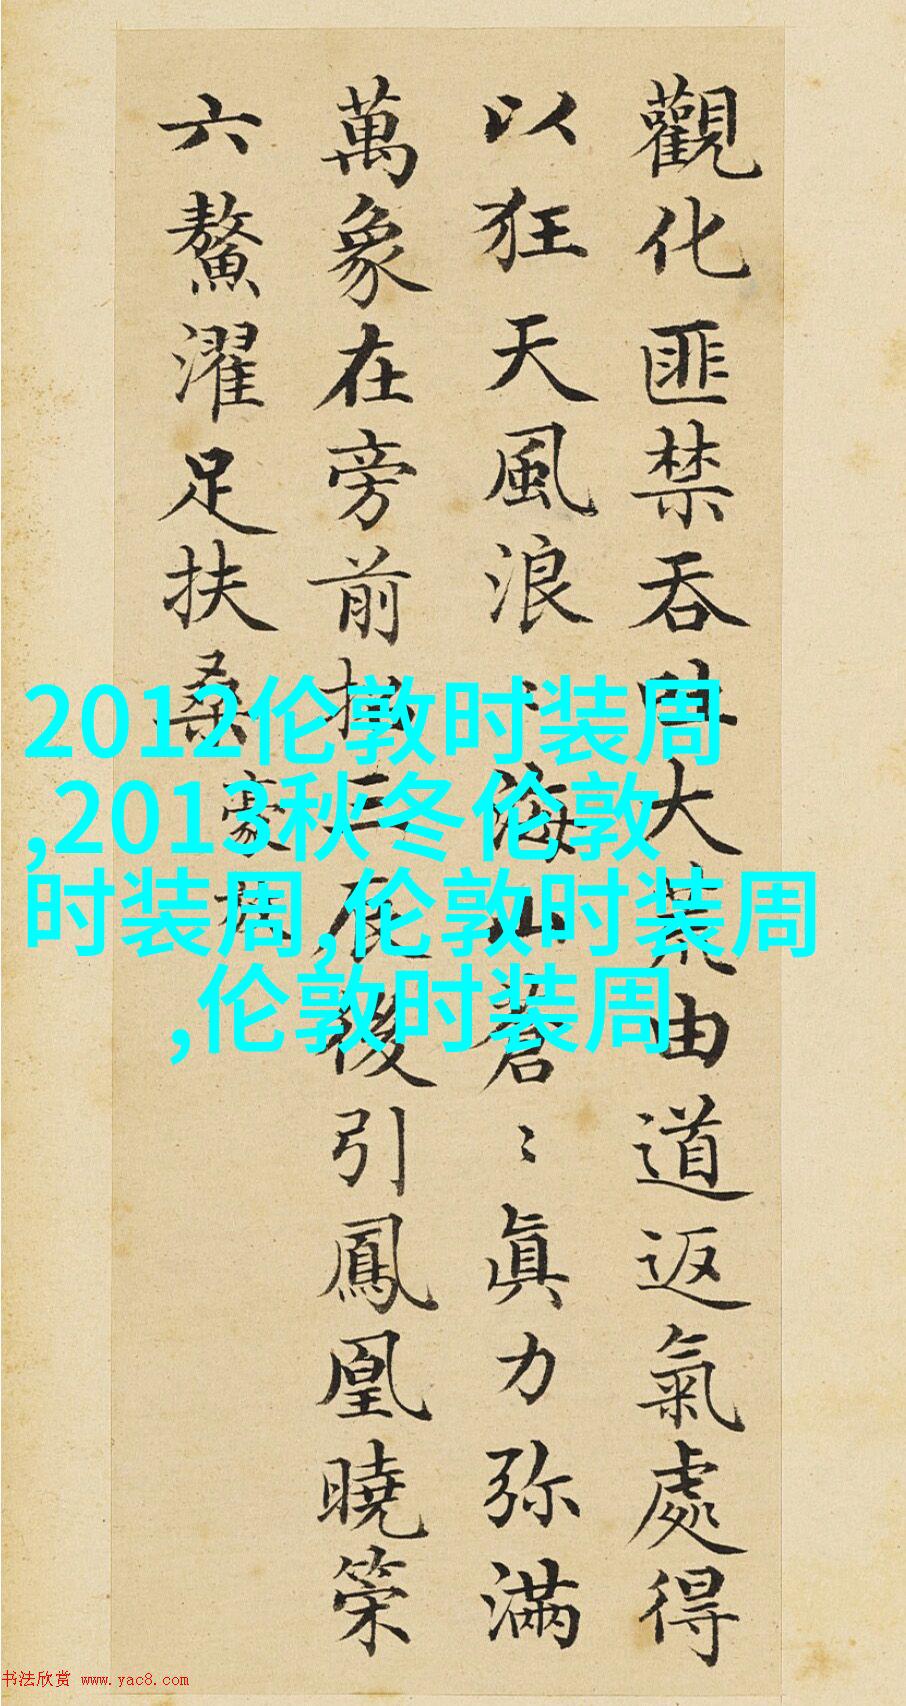 觀化匪禁吞吐大荒由道返氣處得
以狂天風浪〻海山蒼〻眞力弥滿
萬象在旁前招三辰後引鳳凰曉策
六鰲濯足扶桑
豪放
2012伦敦时装周
,2013秋冬伦敦
时装周,伦敦时装周
,伦敦时装周
书法欣赏 www.yac8.com